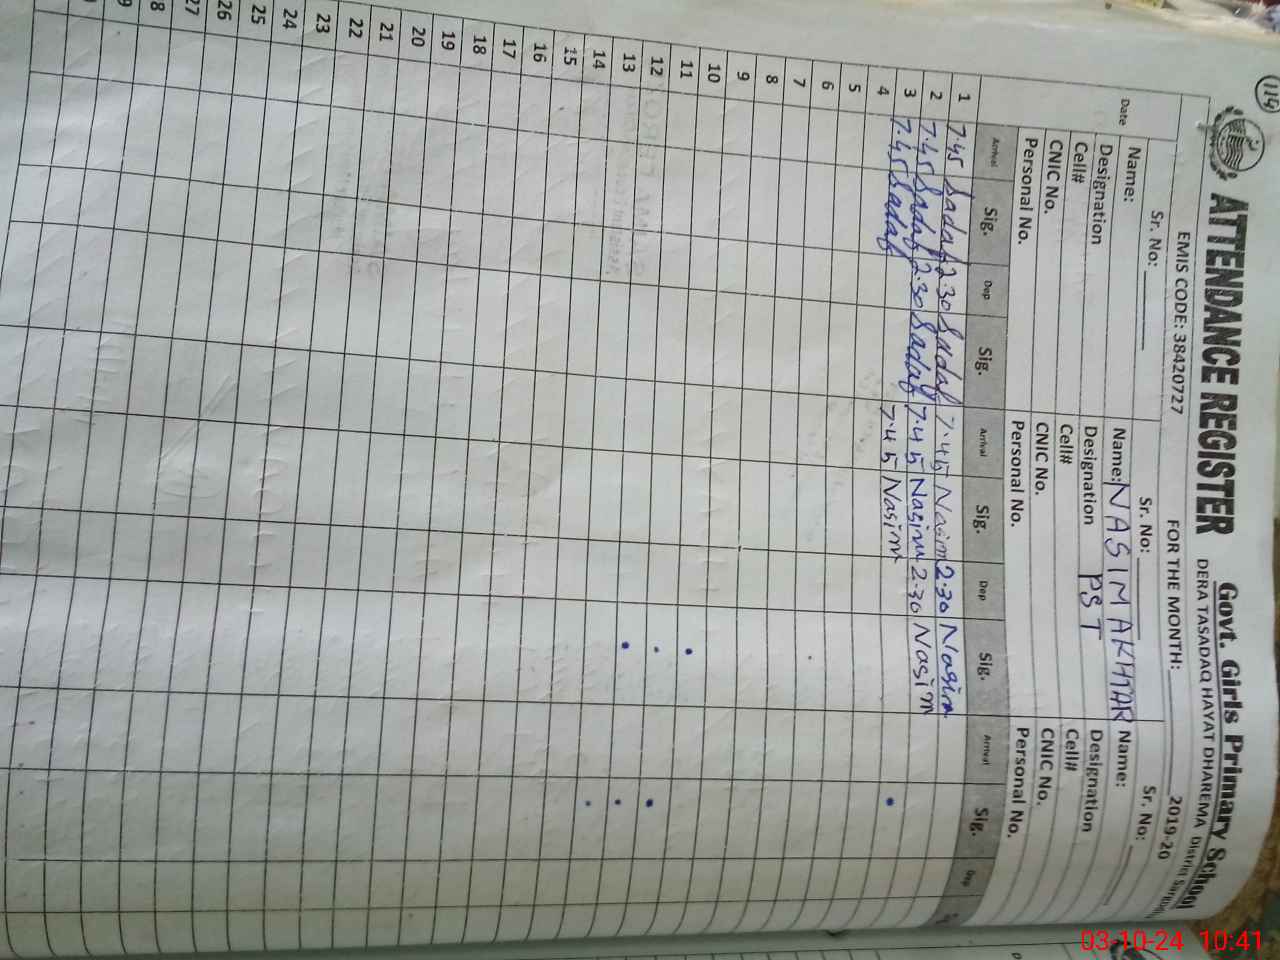 114
ATTENDANCE REGISTER
Govt. Girls Primary School
DERA TASADAQ HAYAT DHAREMA District
EMIS CODE: 38420727 FOR THE MONTH: 2019-20
Sr. No: Sr. No: Sr. No:
Name: Name: NASIM AKHTAR Name:
Designation Designation PST Designation
Cell# Cell# Cell#
CNIC No. CNIC No. CNIC No.
Personal No. Personal No. Personal No.
Date Arrival Sig. Dep Sig. Arrival Sig. Dep Sig. Arrival Sig. Dep
1 7.45 Sadaf 2.30 Sadaf 7.45 Nasim 2.30 Nasim
2 7.45 Sadaf 2.30 Sadaf 7.45 Nasim 2.30 Nasim
3 7.45 Sadaf 7.45 Nasim
4
5
6
7
8
9
10
11
12
13
14
15
16
17
18
19
20
21
22
23
24
25
26
27
03-10-24 10:41